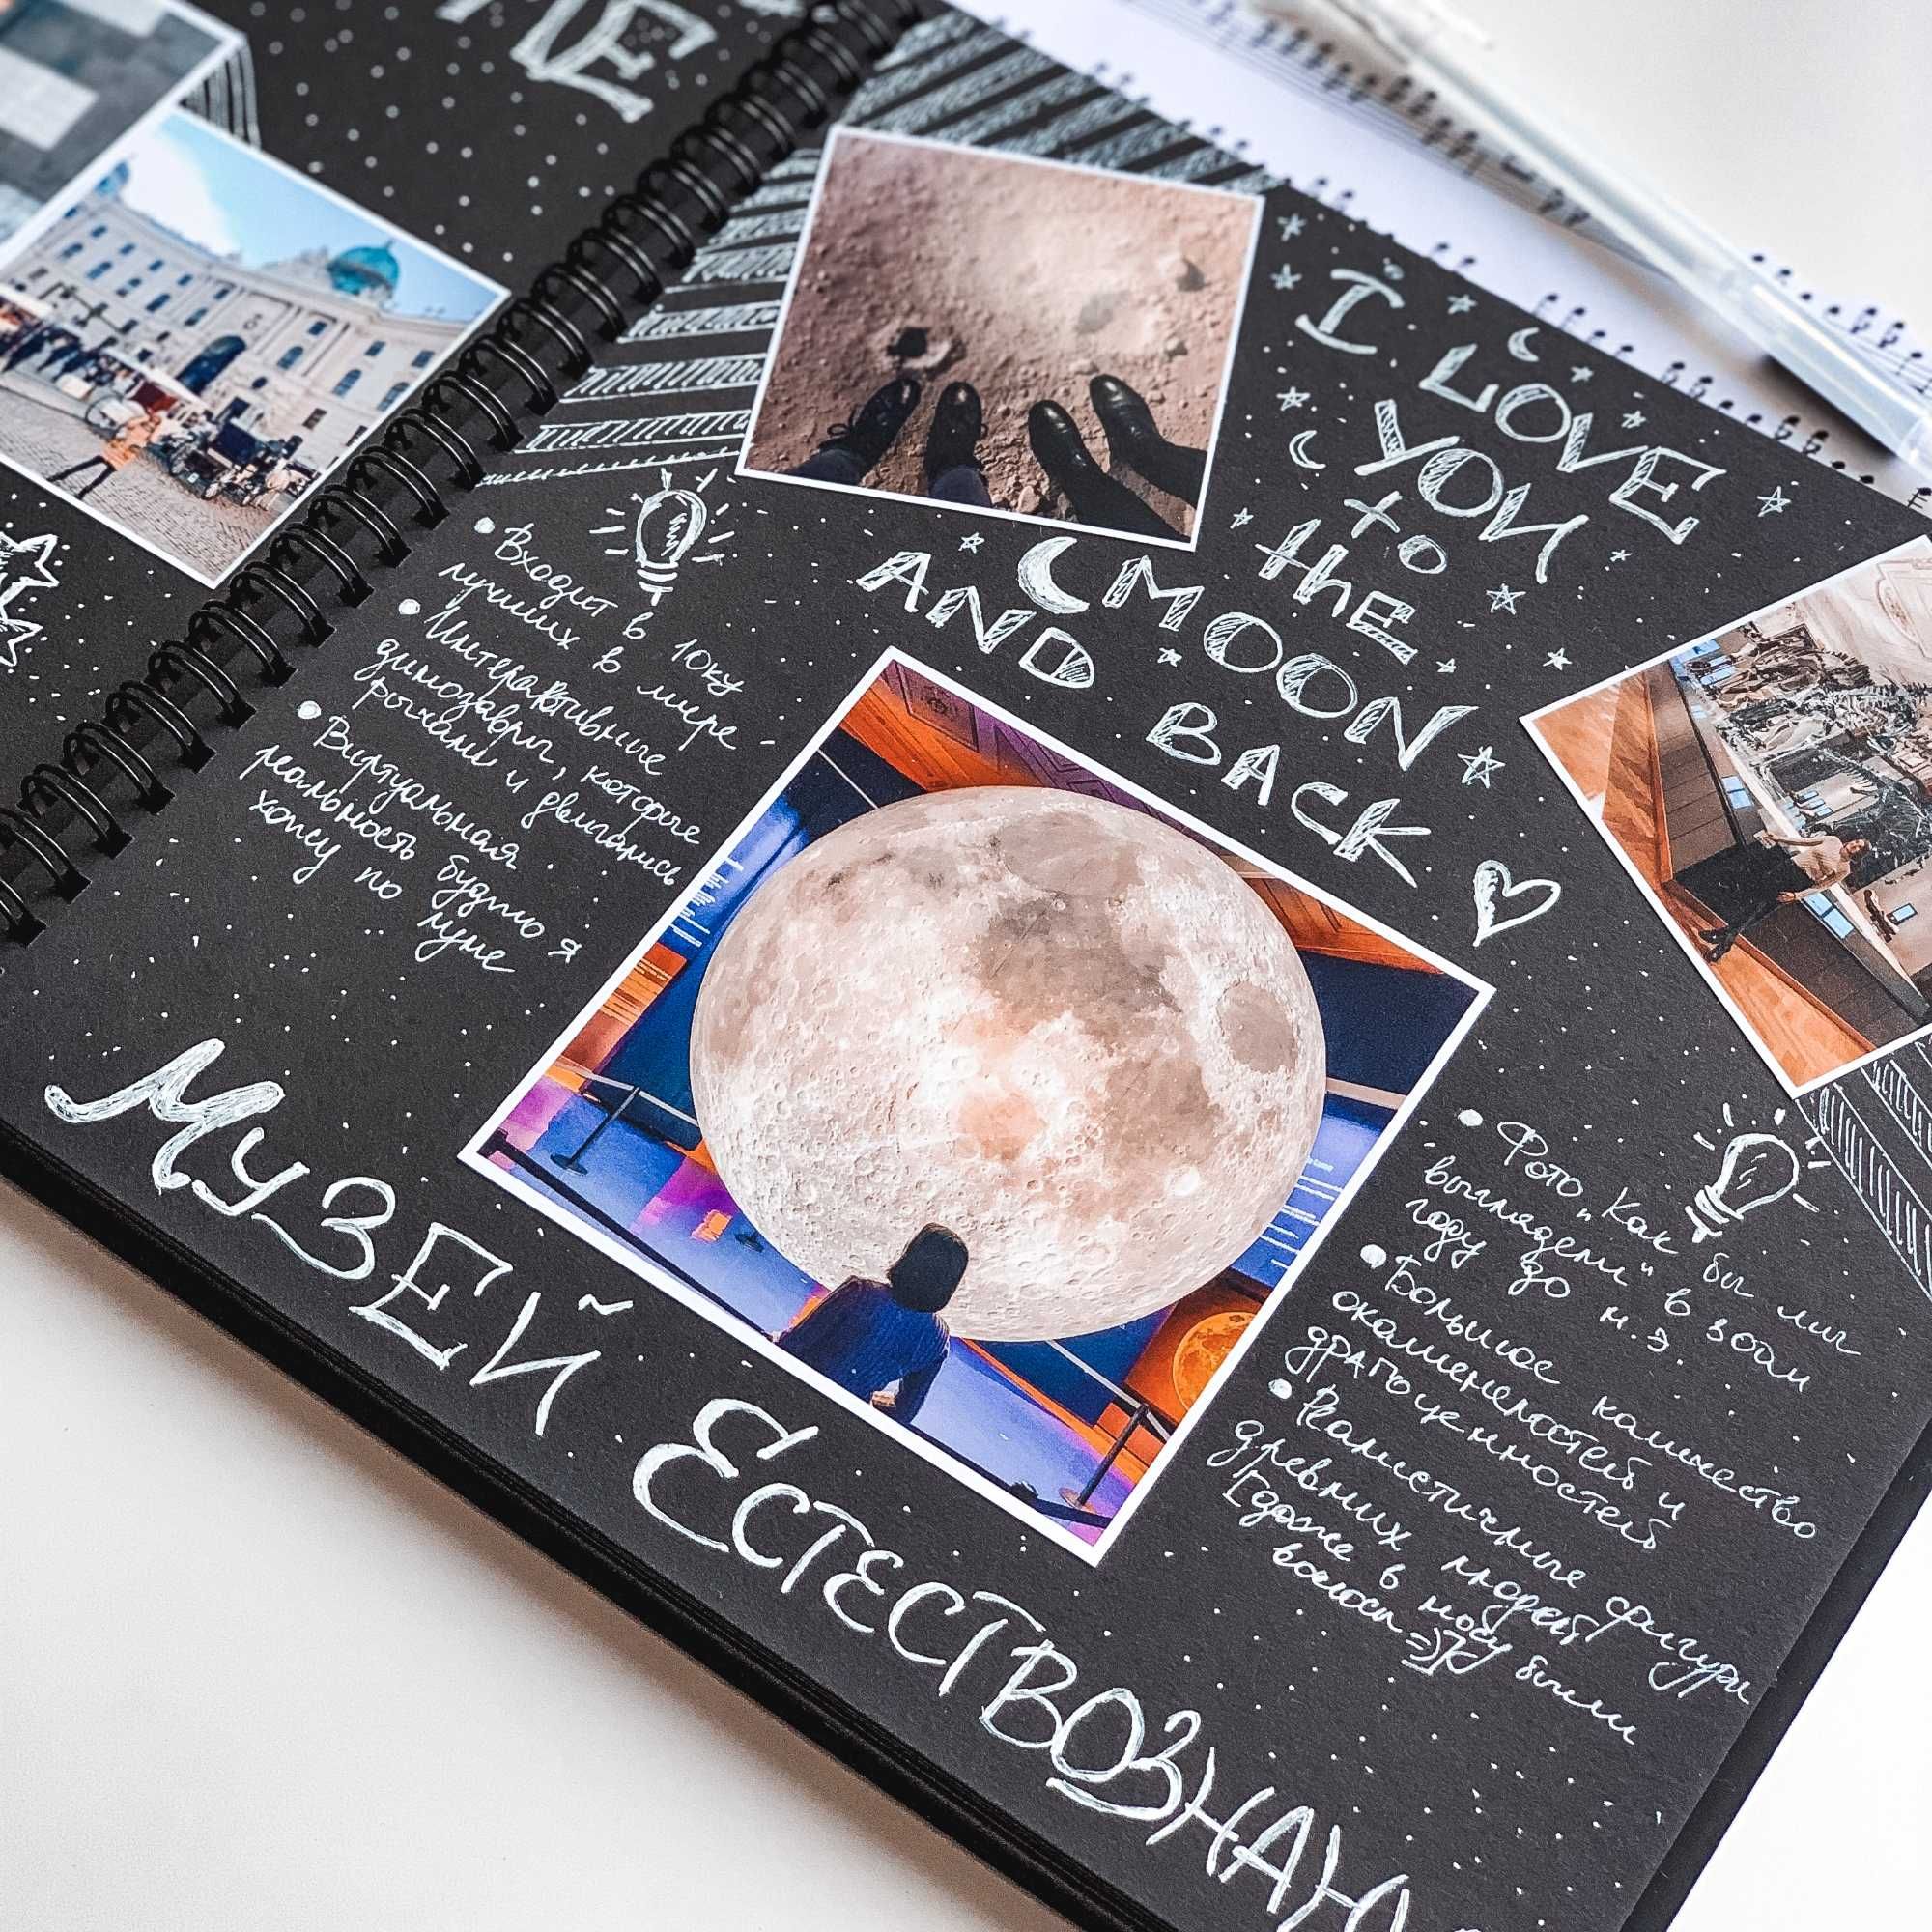 I LOVE
YOU
to
the
MOON
AND BACK
Входит в 10ку
лучших в мире
Интерактивные
динозавры, которые
рычали и двигались
Виртуальная
реальность будто я
хожу по луне
МУЗЕЙ ЕСТЕСТВОЗНАН
Фото „Как бы мы
выглядели" в
году до н.э.
Большое количество
окаменелостей и
драгоценностей
Реалистичные фигуры
древних людей
(даже в носу были
волосы =))